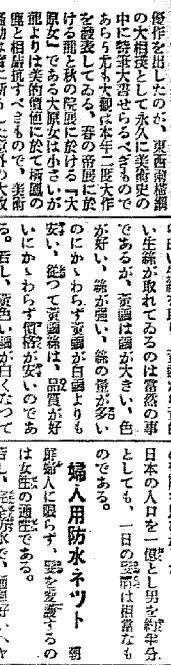 優作を出したのが、東西兩橫綱
の大相撲として永久に美術史の
中に特筆大書せらるべきもので
あらう尤も大觀は本年二度大作
を發表してゐる、春の帝展に於
ける龍と秋の院展に於ける『大
原女』である大原女は小さいが
龍よりは美的價値に於て所謂の
鹿と相店抗すべきもので、美術
い生絲が取れてゐるのは當然の事
であるが、黃繭は繭が大きい、色
が好い、絲が强い、絲の量が多い
のにかゝわらず黃繭が白繭よりも
安い、從つて黃繭絲は、品質が好
いにかゝわらず價格が安いのであ
る。若し、黃色い繭が白くなつて
日本の人口を一億とし男を約半分
としても、一日の
は相當なも
のである。
婦人用防水ネット
婦人に限らず、髪を愛護するの
は女性の通性である。